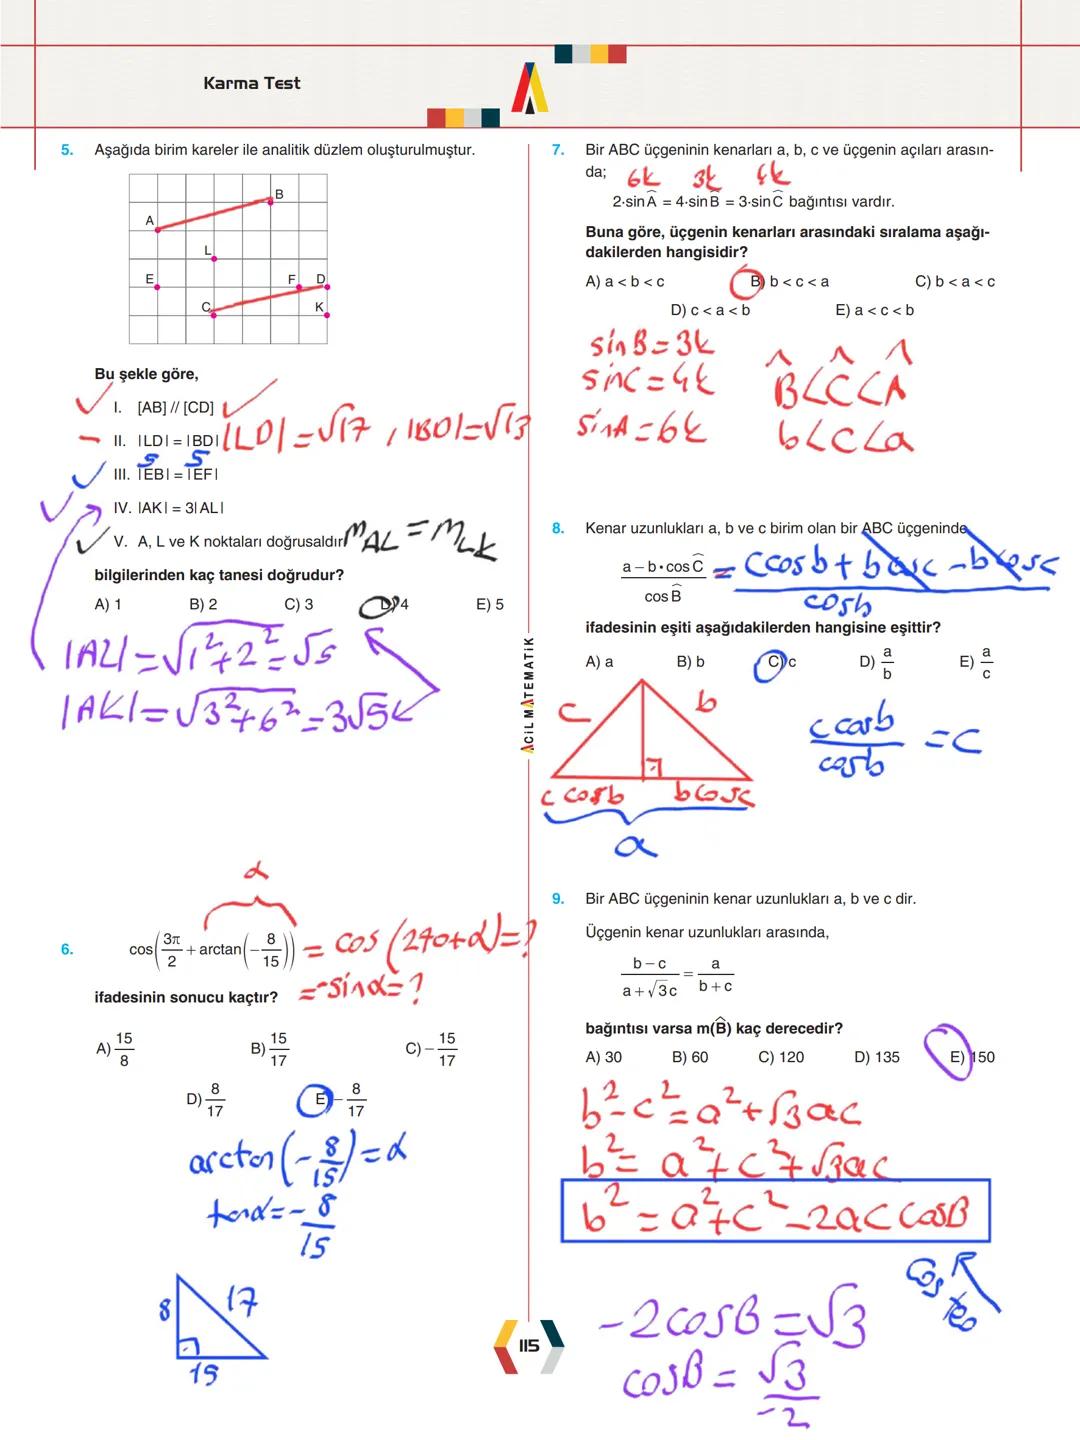 Karma Test
5. Aşağıda birim kareler ile analitik düzlem oluşturulmuştur.
B
A
L
E
F D
C
K
Bu şekle göre,
I. [AB] // [CD]
II. |LD| = |BD| |LD| = √17 , |BD| = √13
5 5
III. |EB| = |EF|
IV. |AK| = 3|AL|
V. A, L ve K noktaları doğrusaldır. mAL = mLK
bilgilerinden kaç tanesi doğrudur?
A) 1 B) 2 C) 3 D) 4 E) 5
|AL| = √1²+2² = √5
|AK| = √3²+6² = 3√5
α
6. cos(3π/2 + arctan(-8/15)) = cos(270+α) = ?
ifadesinin sonucu kaçtır? = -sinα = ?
A) 15/8 B) 15/17 C) -15/17
D) 8/17 E) -8/17
arctan(-8/15) = α
tanα = -8/15
8 17
15
ACİL MATEMATİK
7. Bir ABC üçgeninin kenarları a, b, c ve üçgenin açıları arasın-
da;
6k 3k 4k
2·sin Â = 4·sin B̂ = 3·sin Ĉ bağıntısı vardır.
Buna göre, üçgenin kenarları arasındaki sıralama aşağı-
dakilerden hangisidir?
A) a < b < c B) b < c < a C) b < a < c
D) c < a < b E) a < c < b
sinB = 3k
sinC = 4k B̂ < Ĉ < Â
sinA = 6k b < c < a
8. Kenar uzunlukları a, b ve c birim olan bir ABC üçgeninde
(a – b·cos Ĉ)/(cos B̂) = (c cosb + b cosc - b cosc)/cosb
ifadesinin eşiti aşağıdakilerden hangisine eşittir?
A) a B) b C) c D) a/b E) a/c
c b
c cosb b cosc
a
(c cosb)/cosb = c
9. Bir ABC üçgeninin kenar uzunlukları a, b ve c dir.
Üçgenin kenar uzunlukları arasında,
(b – c)/(a + √3c) = a/(b + c)
bağıntısı varsa m(B̂) kaç derecedir?
A) 30 B) 60 C) 120 D) 135 E) 150
b² - c² = a² + √3ac
b² = a² + c² + √3ac
b² = a² + c² - 2ac CosB
Cos teo
-2cosB = √3
cosB = √3/-2
115